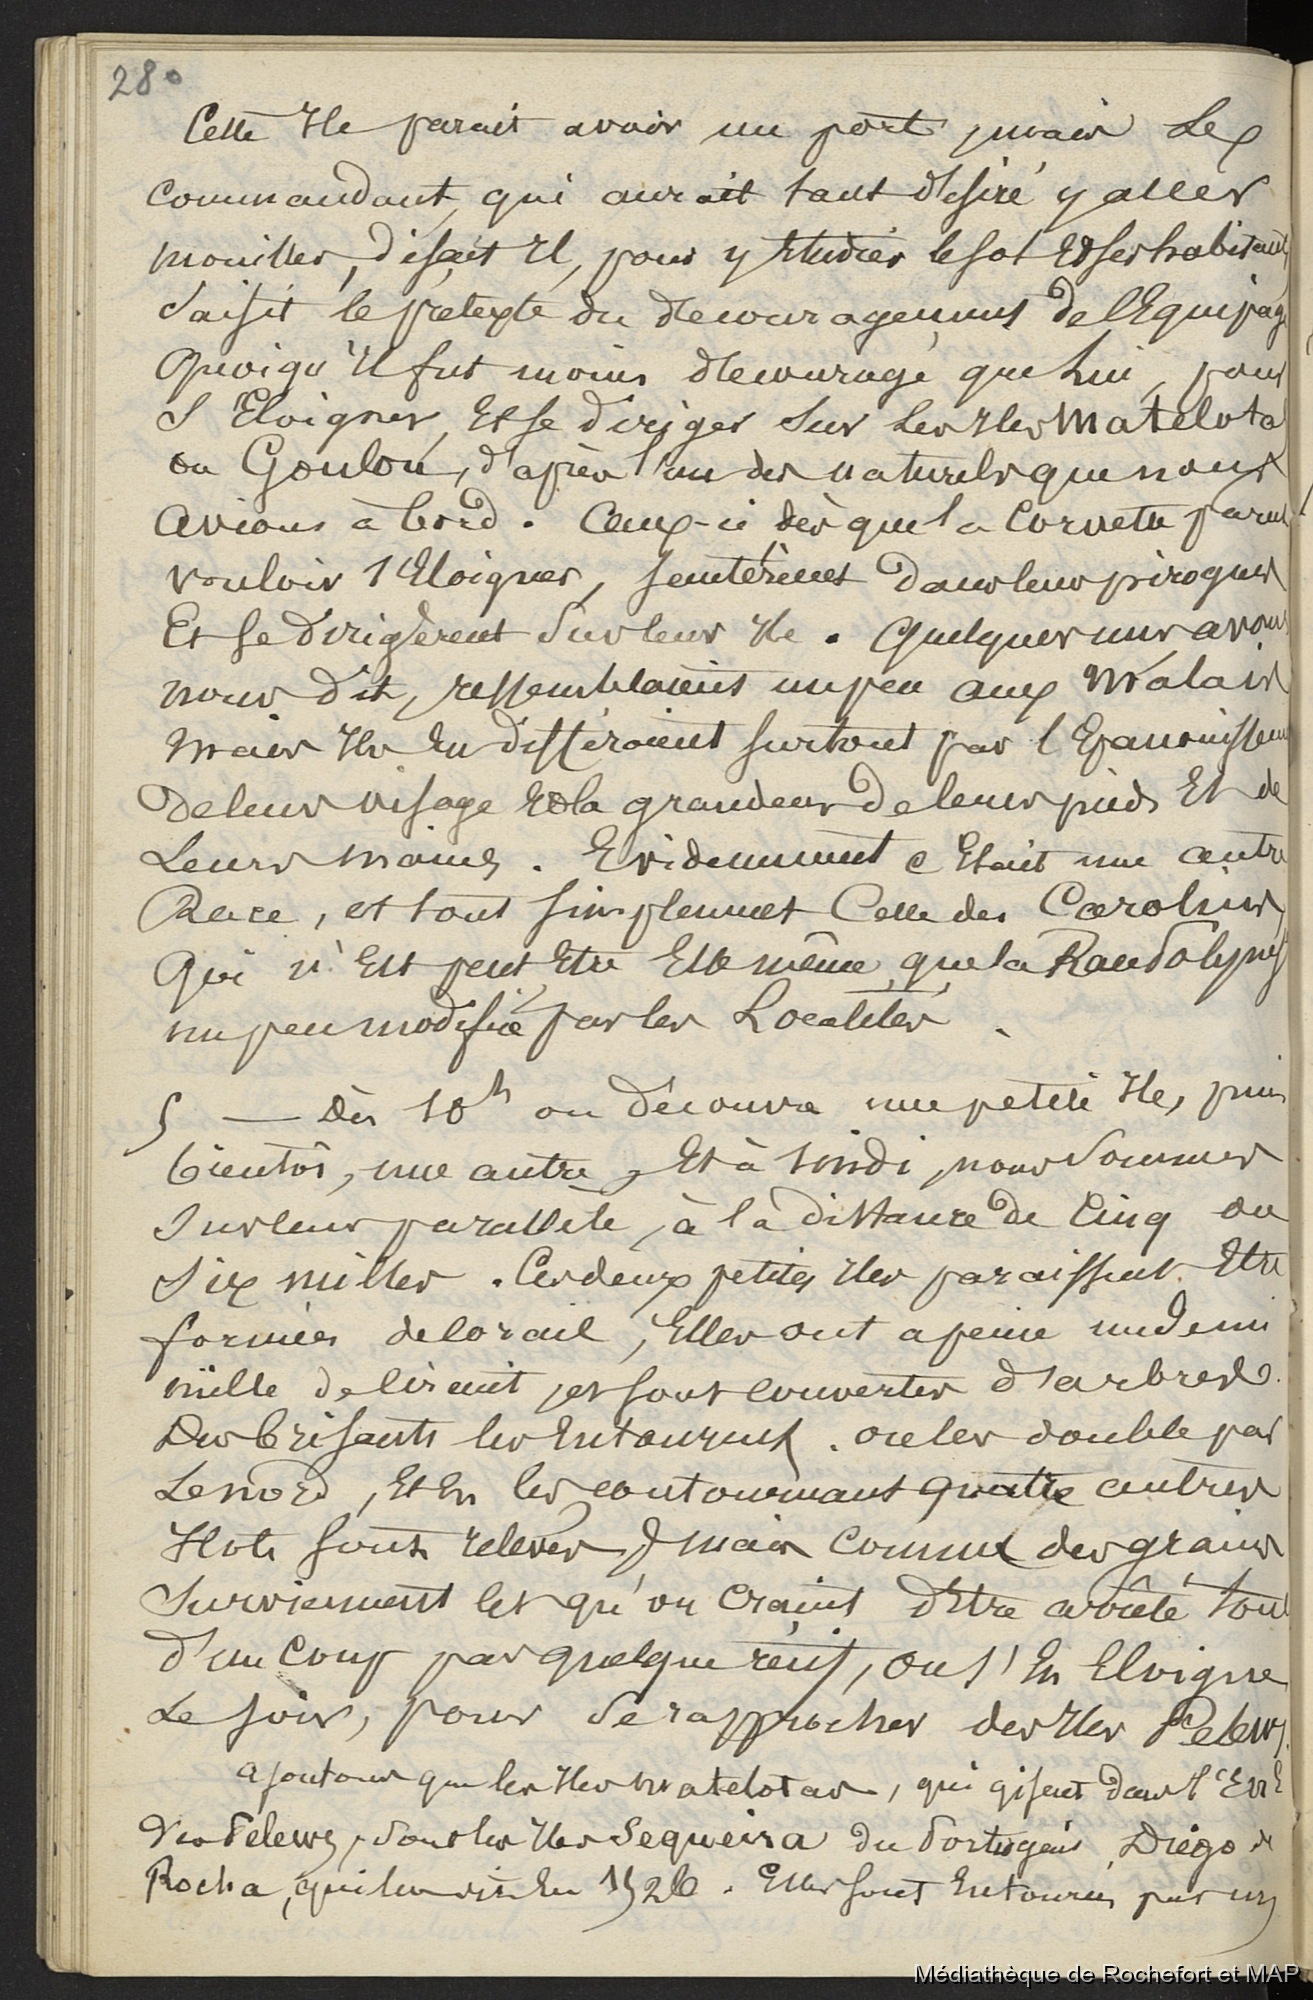 280
Cette Ile parait avoir un port, mais Le
Commandant, qui aurait tant désiré y aller
mouiller, disait Il, pour y Etudier le sol Et ses habitants
Saisit le prétexte du découragement de l'Equipage
Quoiqu'Il fut moins découragé que Lui, pour
S'Eloigner, Et se diriger Sur Les Iles Matelotas
ou Goulou, d'après l'un des naturels que nous
Avions à bord. Ceux-ci dès que la Corvette parut
vouloir s'Eloigner, sautèrent dans leurs pirogues
Et se dirigèrent Sur leur Ile. Quelques uns avons
nous dit, ressemblaient un peu aux Malais
Mais Ils En différaient surtout par l'Epanouissem
De leur visage Et la grandeur de leurs pieds Et de
Leurs mains. Evidemment c'Etait une autre
Race, et tout simplement Celle des Carolins,
Qui n'Est peut Etre Elle même que la
un peu modifiée par les Localités.
5 — Dès 10h on découvre une petite Ile, puis
bientôt, une autre, Et à midi, nous Sommes
Sur leur parallèle, à la distance de Cinq ou
Six milles. Ces deux petites Iles paraissent Etre
formées de Corail, Elles ont a peine un demi
mille de Circuit, et sont couvertes d'arbres.
Des brisants les Entourent. On les double par
Le nord, Et En les contournant quatre autres
Ilots sont relevés, mais Comme des grains
Surviennent Et qu'on Craint d'Etre arrêté tout
d'un Coup par quelque récif, on s'En Eloigne
Le soir, pour Se rapprocher des Iles Pelew.
Ajoutons que les Iles Matelotas, qui gisent dans l'E
des Pelews, sont les Iles Sequeira du Portugais Diégo de
Rocha, qui les vit En 1526. Elles sont Entourées par un
Médiathèque de Rochefort et MAP